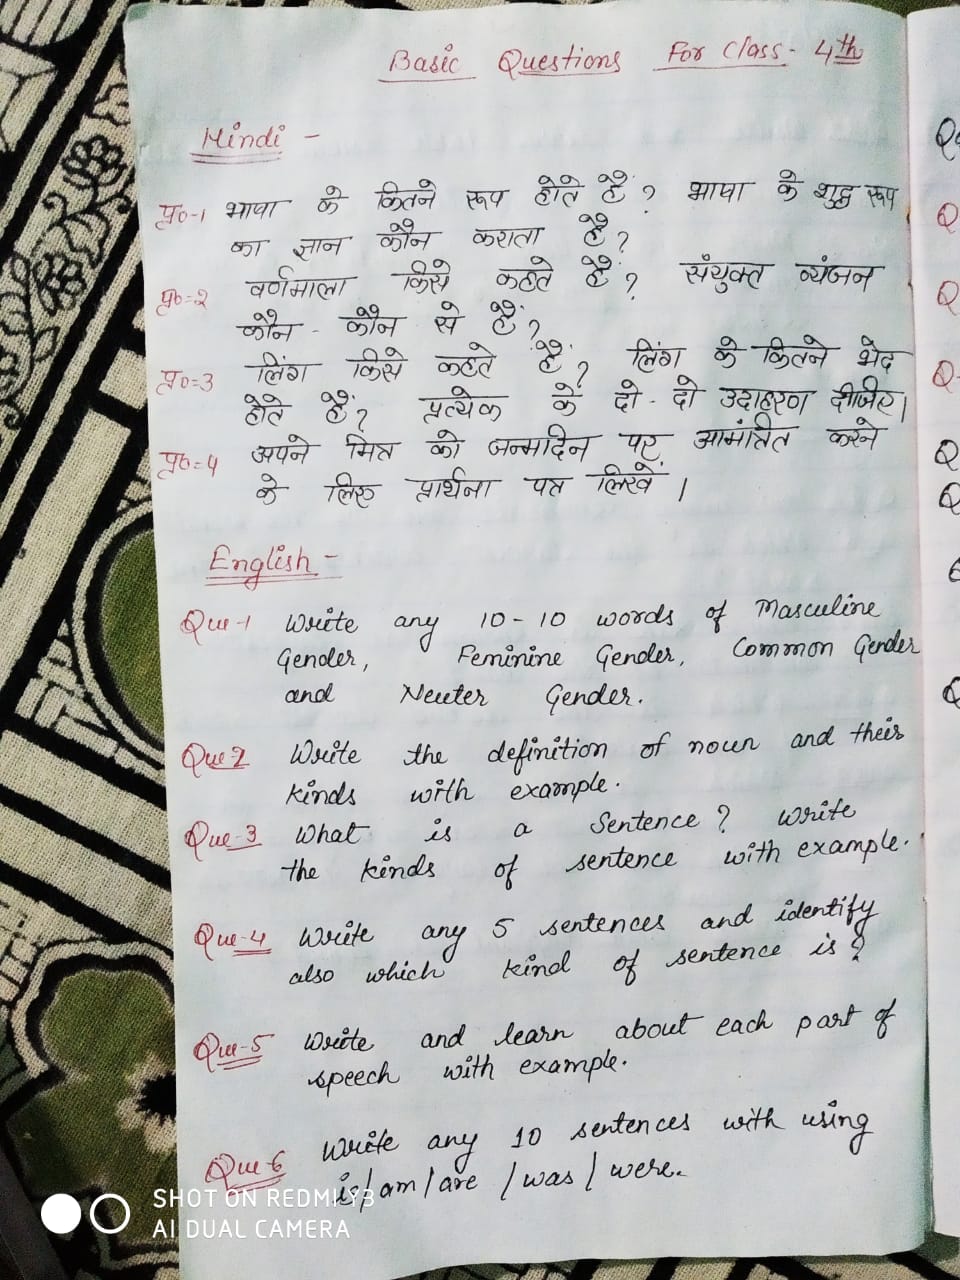 Basic Questions For Class- 4th
Hindi -
प्र०-1 भाषा के कितने रूप होते हैं ? भाषा के शुद्ध रूप
का ज्ञान कौन कराता है ?
प्र०=2 वर्णमाला किसे कहते हैं ? संयुक्त व्यंजन
कौन - कौन से हैं ?
प्र०=3 लिंग किसे कहते हैं ? लिंग के कितने भेद
होते हैं ? प्रत्येक के दो - दो उदाहरण दीजिए।
प्र०=4 अपने मित्र को जन्मदिन पर आमंत्रित करने
के लिए प्रार्थना पत्र लिखें ।
English -
Que-1 Write any 10-10 words of Masculine
Gender, Feminine Gender, Common Gender
and Neuter Gender.
Que-2 Write the definition of noun and their
kinds with example.
Que-3 What is a Sentence ? Write
the kinds of sentence with example.
Que-4 Write any 5 sentences and identify
also which kind of sentence is ?
Que-5 Write and learn about each part of
speech with example.
Que-6 Write any 10 sentences with using
is/am/are/was/were.
SHOT ON REDMI Y3
AI DUAL CAMERA